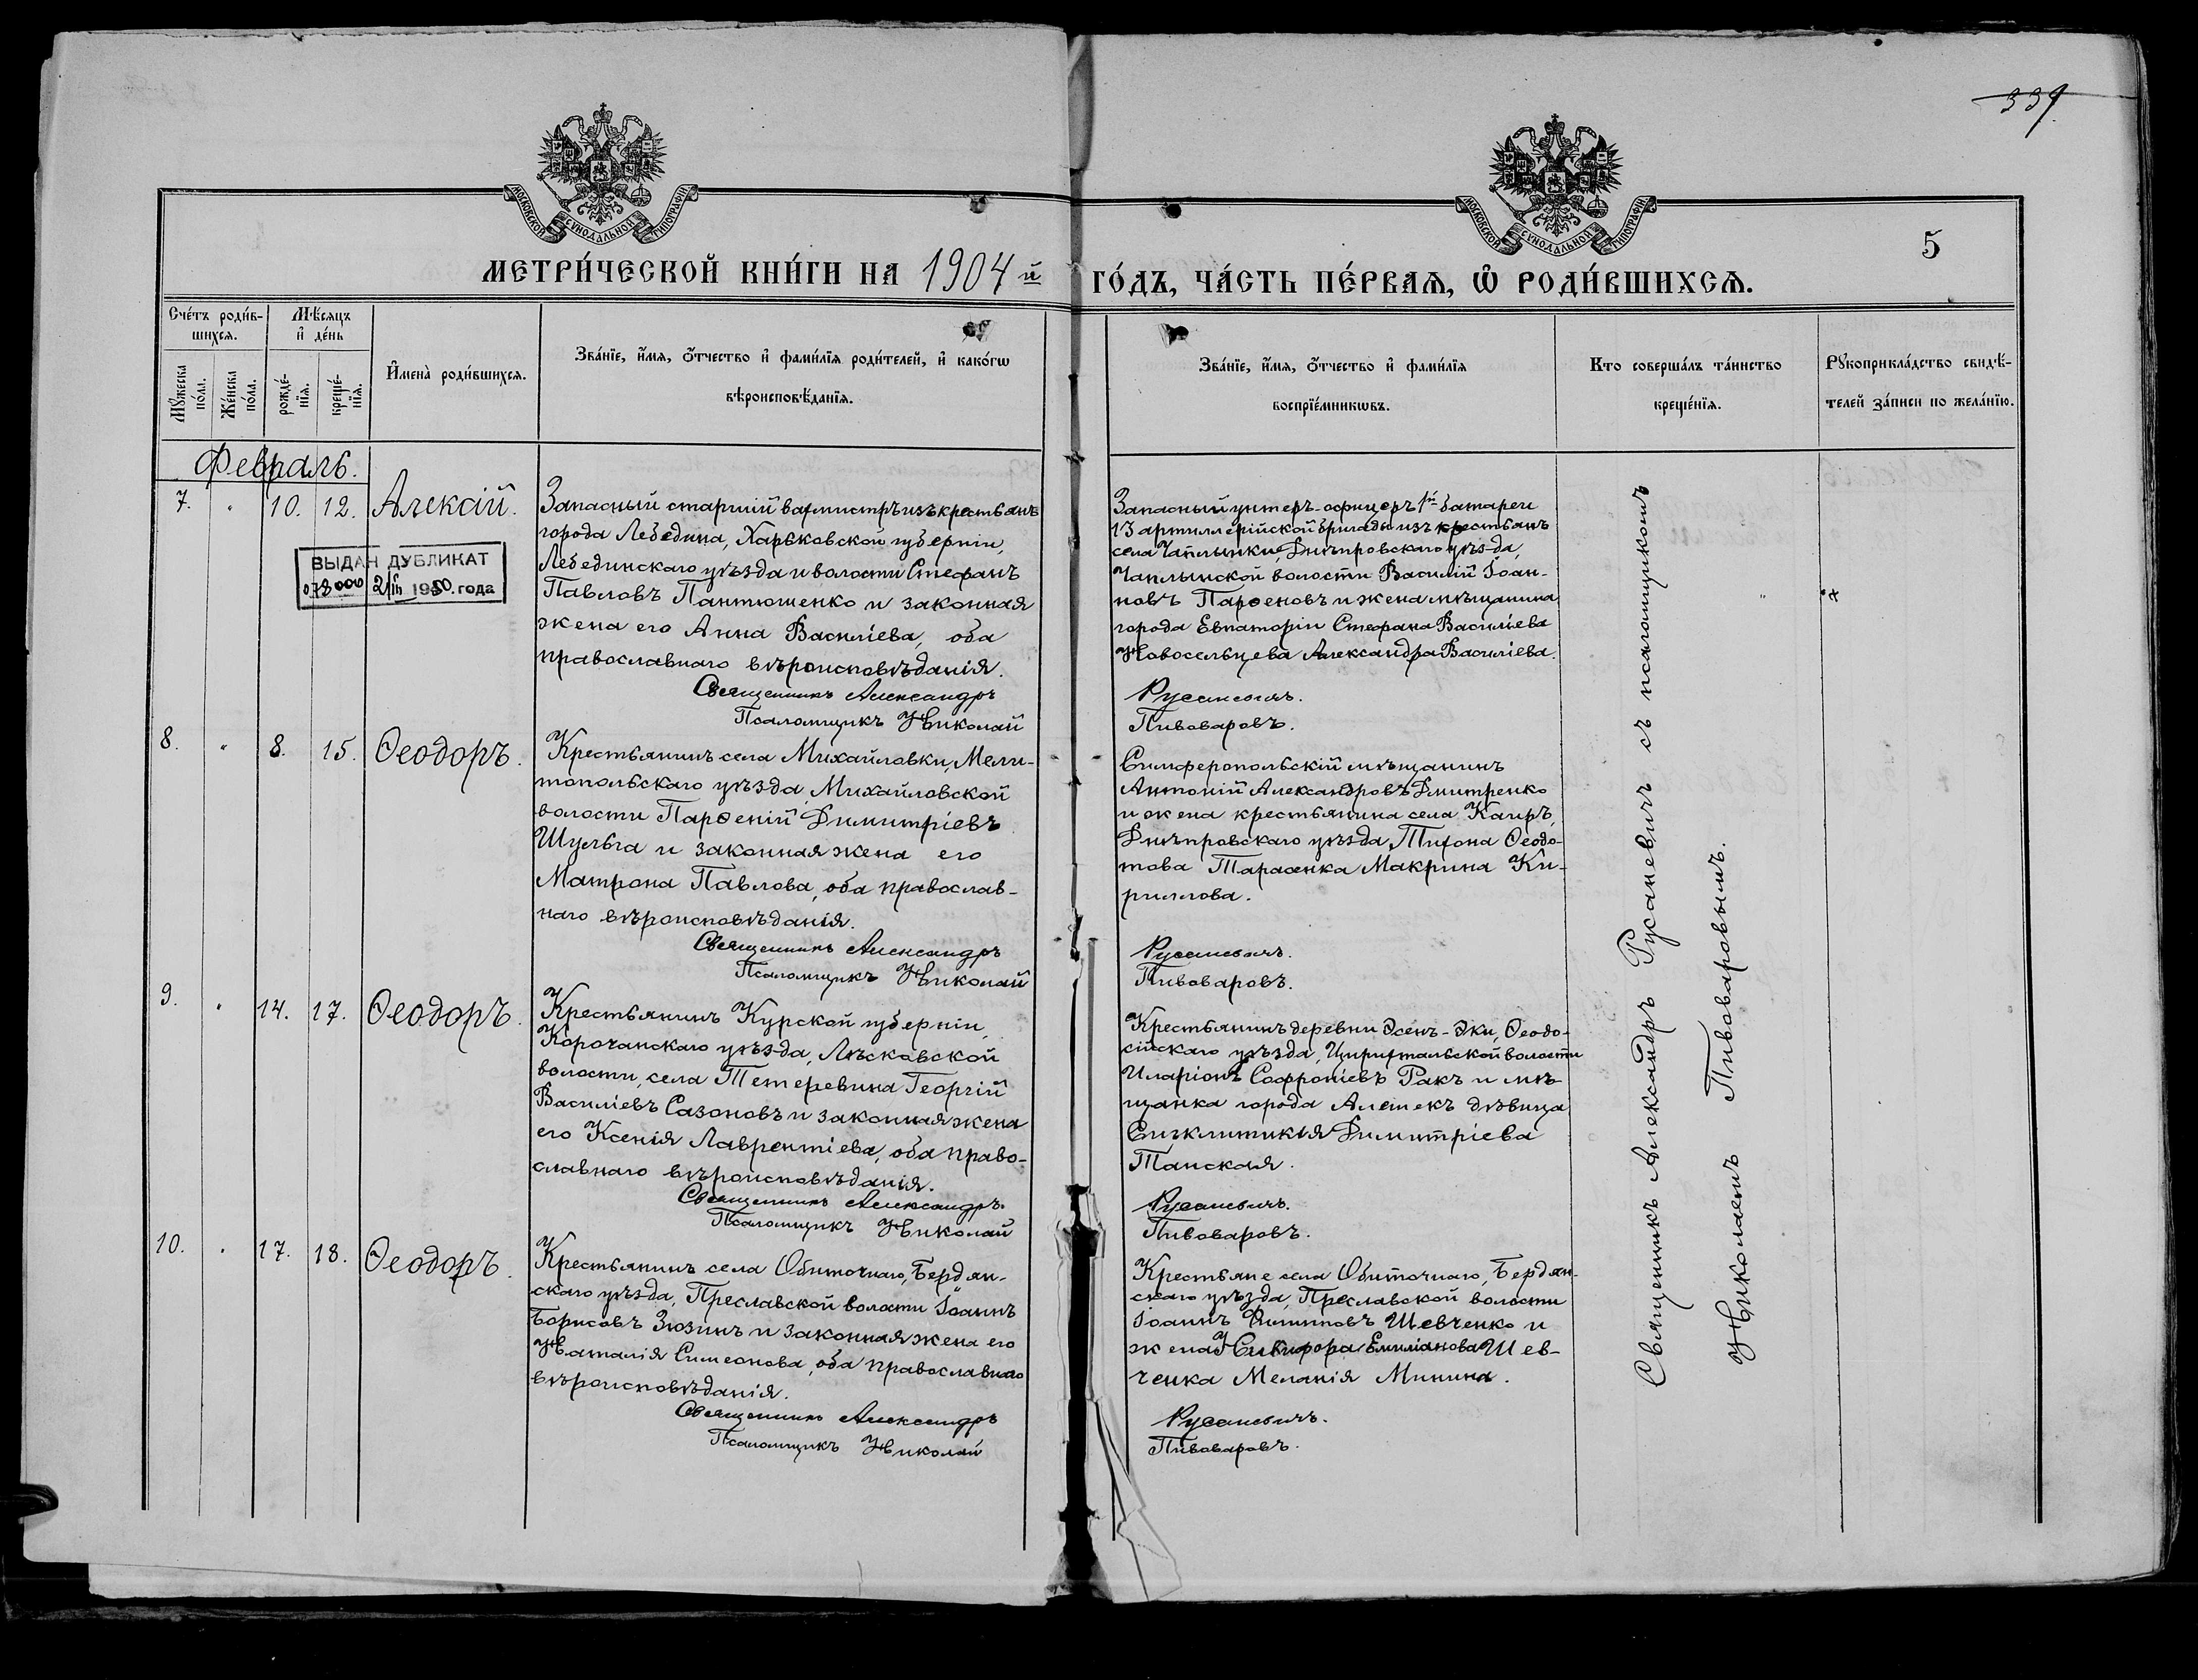 339
МОСКОВСКОЙ СѴНОДАЛЬНОЙ ТИПОГРАФІИ
МОСКОВСКОЙ СѴНОДАЛЬНОЙ ТИПОГРАФІИ
5
МЕТРИ́ЧЕСКОЙ КНИ́ГИ НА 1904 й
ГО́ДЪ, ЧА́СТЬ ПЕ́РВАѦ, Ѿ РОДИ́ВШИХСѦ.
Сче́тъ роди́в-
шихсѧ.
Мѣ́сѧцъ
и҆ де́нь
Мꙋ́жеска
по́ла.
Же́нска
по́ла.
рожде́-
нїѧ.
креще́-
нїѧ.
И҆мена̀ роди́вшихсѧ.
Зва́нїе, и҆́мѧ, ѻ҆́тчество и҆ фами́лїѧ роди́телей, и҆ како́гѡ
вѣроисповѣ́данїѧ.
Зва́нїе, и҆́мѧ, ѻ҆́тчество и҆ фами́лїѧ
воспрїе́мникѡвъ.
Кто соверша́лъ та́инство
креще́нїѧ.
Рꙋкоприкла́дство свидѣ́-
телей за́писи по жела́нїю.
Февраль.
7. " 10. 12. Алексій.
Запасный старшій вахмистръ изъ крестьянъ
города Лебедина, Харьковской губерніи,
Лебединскаго уѣзда и волости Стефанъ
Павловъ Пантюшенко и законная
жена его Анна Василіева, оба
православнаго вѣроисповѣданія.
Священникъ Александръ
Псаломщикъ Николай
ВЫДАН ДУБЛИКАТ
073000 2/III 1950. года
Запасный унтеръ-офицеръ 1й батареи
13 артиллерійской бригады изъ крестьянъ
села Чаплынки, Днѣпровскаго уѣзда,
Чаплынской волости Василій Іоан-
новъ Парѳеновъ и жена мѣщанина
города Евпаторіи Стефана Василіева
Новосельцева Александра Василіева.
Русаневичъ.
Пивоваровъ.
8. " 8. 15. Ѳеодоръ.
Крестьянинъ села Михайловки, Мели-
топольскаго уѣзда, Михайловской
волости Парѳеній Димитріевъ
Шульга и законная жена его
Матрона Павлова, оба православ-
наго вѣроисповѣданія.
Священникъ Александръ
Псаломщикъ Николай
Симферопольскій мѣщанинъ
Антоній Александровъ Дмитренко
и жена крестьянина села Каиръ,
Днѣпровскаго уѣзда, Тихона Ѳеодо-
това Тарасенка Макрина Ки-
риллова.
Русаневичъ.
Пивоваровъ.
9. " 14. 17. Ѳеодоръ.
Крестьянинъ Курской губерніи,
Корочанскаго уѣзда, Лѣсковской
волости, села Тетеревина Георгій
Василіевъ Сазоновъ и законная жена
его Ксенія Лаврентіева, оба право-
славнаго вѣроисповѣданія.
Священникъ Александръ
Псаломщикъ Николай
Крестьянинъ деревни Эсенъ-Эки, Ѳеодо-
сійскаго уѣзда, Цирихтальской волости
Иларіонъ Софроніевъ Ракъ и мѣ-
щанка города Алешекъ дѣвица
Сигклитикія Димитріева
Танская.
Русаневичъ.
Пивоваровъ.
10. " 17. 18. Ѳеодоръ.
Крестьянинъ села Обиточнаго, Бердян-
скаго уѣзда, Преславской волости Іоаннъ
Борисовъ Зюзинъ и законная жена его
Наталія Симеонова, оба православнаго
вѣроисповѣданія.
Священникъ Александръ
Псаломщикъ Николай
Крестьяне села Обиточнаго, Бердян-
скаго уѣзда, Преславской волости
Іоаннъ Филипповъ Шевченко и
жена Никифора Емиліанова Шев-
ченка Меланія Минина.
Русаневичъ.
Пивоваровъ.
Священникъ Александръ Русаневичъ съ псаломщикомъ
Николаемъ Пивоваровымъ.